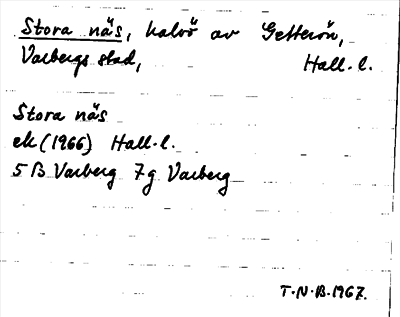 Stora näs, halvö av Getterön,
Varbergs stad, Hall. l.
Stora näs
ek (1966) Hall. l.
5 B Varberg 7g Varberg
T. N. B. 1967.